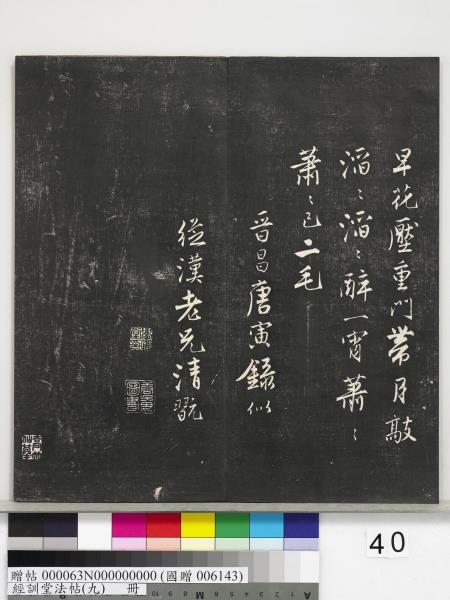 早花壓重門帶月敲
滔〻滔〻醉一宵蕭〻
蕭〻已二毛
晉昌唐寅錄似
從漢老兄清翫
40
贈帖 000063N000000000 (國贈 006143)
經訓堂法帖(九) 冊